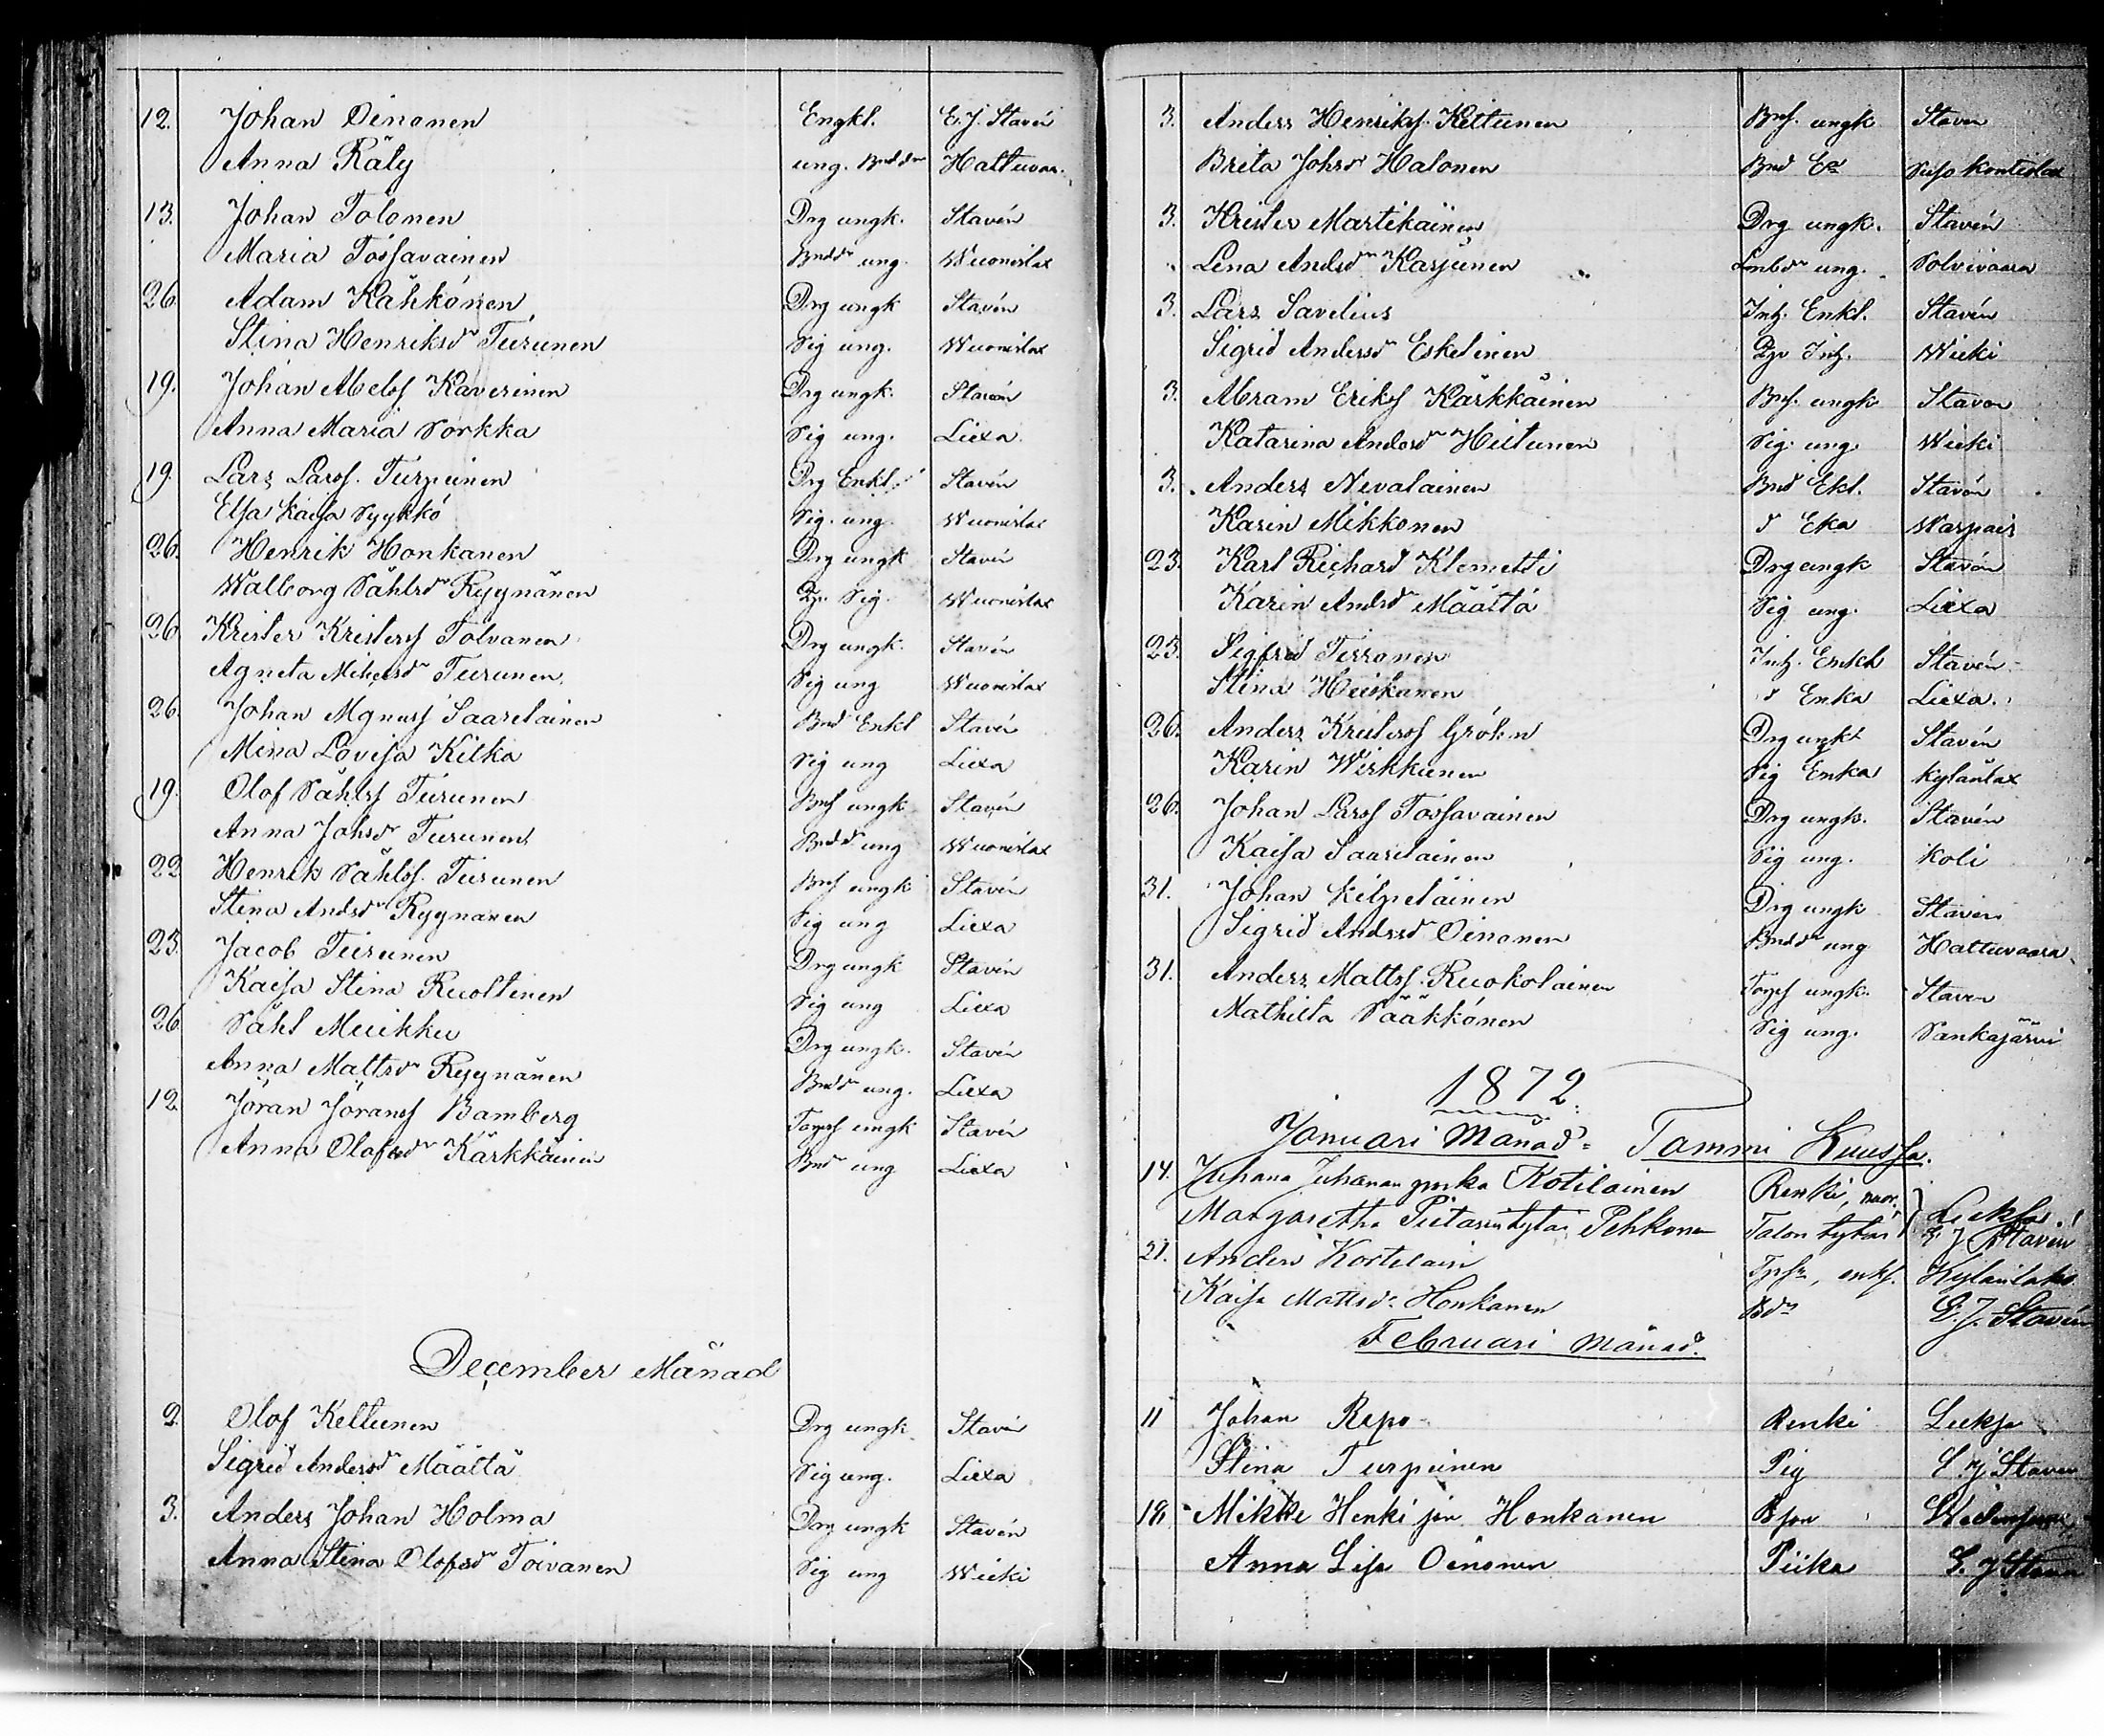 12. Johan Oinonen Engkl. E.J. Stavén
Anna Räty ung. Bnddr Hattuvaa.
13. Johan Tolonen Drg ungk. Stavén
Maria Tossavainen Bnddr ung. Wuonislax
26. Adam Kähkönen Drg ungk Stavén
Stina Henriksdr Turunen Pig ung. Wuonislax
19. Johan Abelss Kaverinen Drg ungk. Stavén
Anna Maria Sorkka Pig ung. Liexa
19. Lars Larss. Turpeinen Drg Enkl. Stavén
Elsa Kaisa Syykkö Pig. ung. Wuonislax
26. Henrik Honkanen Drg ungk Stavén
Walborg Påhlsdr Ryynänen Pig. Wuonislax
26. Krister Kristerss Tolvanen Drg ungk. Stavén
Agneta Michelsdr Turunen Pig ung Wuonislax
26. Johan Mgnuss Saarelainen Bnd Enkl Stavén
Mina Lovisa Kilka Pig ung Liexa
19. Olof Påhlss Turunen Bns ungk Stavén
Anna Johsdr Turunen Bnddr ung Wuonislax
22 Henrik Påhlss. Turunen Bns ungk Stavén
Stina Andsdr Ryynänen Pig ung Liexa
23. Jacob Turunen Drg ungk Stavén
Kaisa Stina Ruottinen Pig ung Liexa
26. Påhl Muikku Drg ungk. Stavén
Anna Mattsdr Ryynänen Bnddr ung. Liexa
12. Jöran Jöranss Bamberg Torps ungk Stavén
Anna Olofsdr Kärkkäinen Bndr ung Liexa
December Månad
2. Olof Keltunen Drg ungk Stavén
Sigrid Andersdr Määttä Pig ung. Liexa
3. Anders Johan Holma Drg ungk Stavén
Anna Stina Olofsdr Toivanen Pig ung Wieki
3. Anders Henrikss. Kettunen Bns. ungk Staven
Breta Johsdr Halonen Bnd Ea Kontiolax
3. Krister Martikainen Drg ungk. Stavén
Lena Andsdr Karjunen ung. Polvivaara
3. Lars Savelius Inh. Enkl. Stavén
Sigrid Andersdr Eskelinen Inh. Wieki
3. Abram Erikss Kärkkäinen Bns. ungk Staven
Katarina Andersdr Hiltunen Pig. ung. Wieki
3. Anders Nevalainen Bnd Ekl. Stavén
Karin Mikkonen d Eka Warpais
23. Karl Richard Klemetti Drg ungk Stavén
Karin Andsdr Määttä Pig ung. Liexa
23. Sigfred Tirronen Inh. Enkl Stavén
Stina Huiskanen d Enka Liexa.
26. Anders Kristerss Gröhn Drg unkl Stavén
Karin Wirkkunen Pig Enka Kylänlax
26. Johan Larss Tossavainen Drg ungk. Stavén
Kaisa Saarelainen Pig ung. Koli
31. Johan Kilpeläinen Drg ungk Stavén
Sigrid Andersdr Oinonen Bnddr ung Hattuvaara
31. Anders Mattss. Ruokolainen Torps ungk. Staven
Mathilta Sääkkönen Pig ung. Pankajärvi
1872.
Januari Månad = Tammi Kuussa.
14. Juhana Juhanan poika Kotilainen Renki, nuor. Lieksa.
Margaretha Pietarintytär Pehkonen Talon tytär E J Stavén
21. Anders Kortelain enkl. Kylänlaks
Kaisa Mattsdr Honkanen Bdr E.J. Stavén
Februari Månad.
11 Johan Repo Renki Lieksa
Stina Turpeinen Pig E.J. Staven
18. Mikke Henkipn Honkanen Bson
Anna Lisa Oinonen Piika E. J Staven